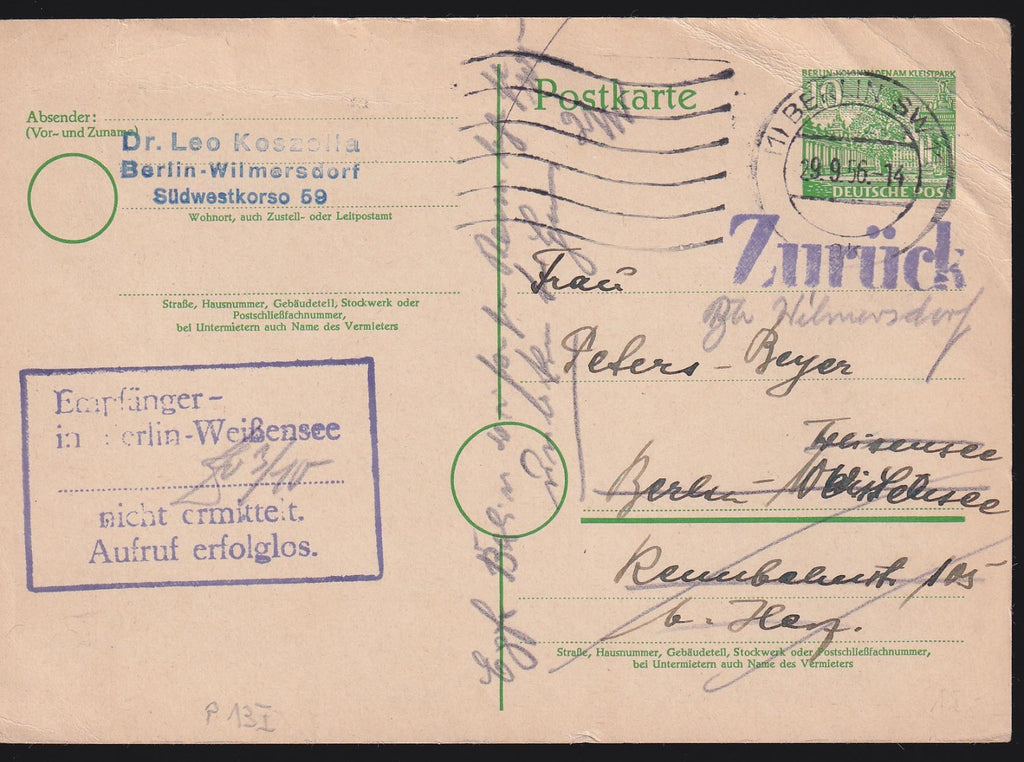 Absender:
(Vor- und Zuname)
Dr. Leo Koszella
Berlin-Wilmersdorf
Südwestkorso 59
Wohnort, auch Zustell- oder Leitpostamt
Straße, Hausnummer, Gebäudeteil, Stockwerk oder
Postschließfachnummer,
bei Untermietern auch Name des Vermieters
Empfänger-
in Berlin-Weißensee
3/10
nicht ermittelt.
Aufruf erfolglos.
P 13 I
Postkarte
BERLIN·KOLONNADEN AM KLEISTPARK
10
DEUTSCHE POST
(1) BERLIN SW
29.9.56.-14
Zurück
Bln Wilmersdorf
Frau
Peters-Beyer
Weisensee
Berlin-
Rennbahnst. 105
b. Hez.
Straße, Hausnummer, Gebäudeteil, Stockwerk oder Postschließfachnummer,
bei Untermietern auch Name des Vermieters